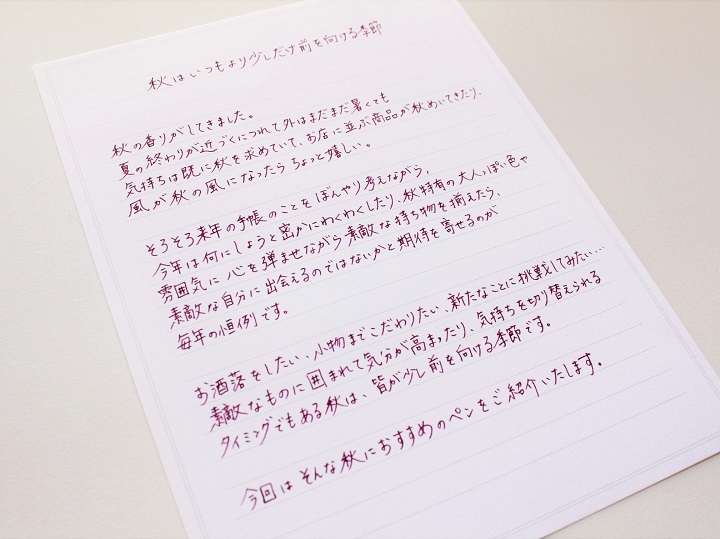 秋はいつもより少しだけ前を向ける季節
秋の香りがしてきました。
夏の終わりが近づくにつれて外はまだまだ暑くても
気持ちは既に秋を求めていて、お店に並ぶ商品が秋めいてきたり、
風が秋の風になったらちょっと嬉しい。
そろそろ来年の手帳のことをぼんやり考えながら、
今年は何にしようと密かにわくわくしたり、秋特有の大人っぽい色や
雰囲気に心を弾ませながら素敵な持ち物を揃えたら、
素敵な自分に出会えるのではないかと期待を寄せるのが
毎年の恒例です。
お洒落をしたい、小物までこだわりたい、新たなことに挑戦してみたい…
素敵なものに囲まれて気分が高まったり、気持ちを切り替えられる
タイミングでもある秋は、皆が少し前を向ける季節です。
今回はそんな秋におすすめのペンをご紹介いたします。